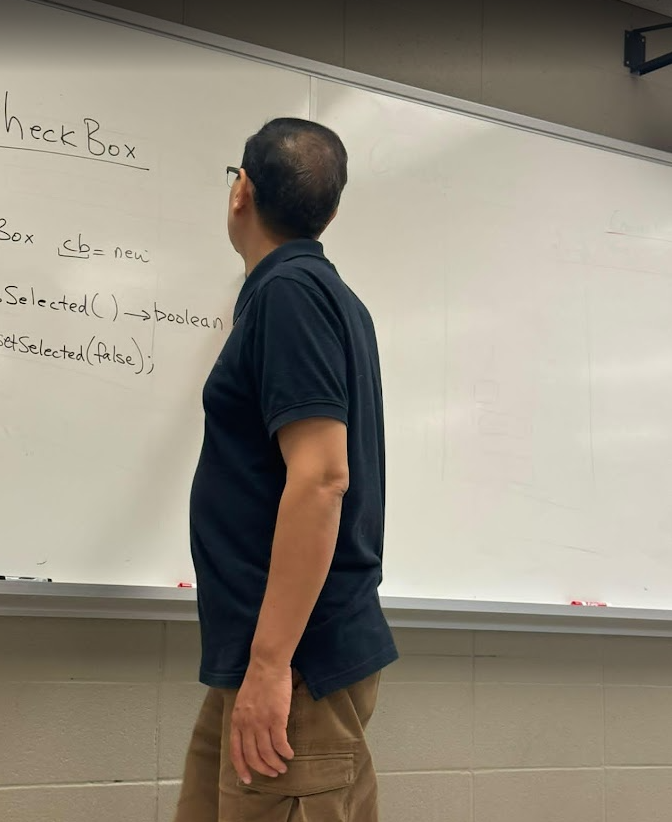 heckBox
Box cb = new
.Selected( ) → boolean
setSelected(false);